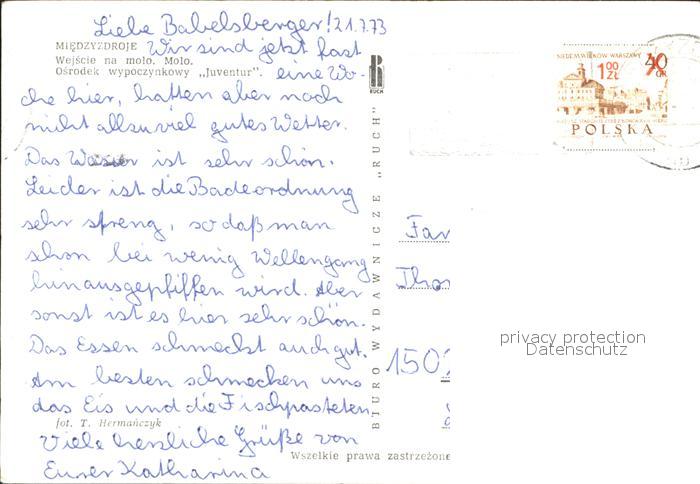 Liebe Babelsberger! 21.7.73
MIĘDZYZDROJE Wir sind jetzt fast
Wejście na molo. Molo.
Ośrodek wypoczynkowy „Juventur". eine Wo-
che hier, hatten aber noch
nicht allzuviel gutes Wetter.
Das Wasser ist sehr schön.
Leider ist die Badeordnung
sehr streng, so daß man
schon bei wenig Wellengang
hinausgepfiffen wird. Aber
sonst ist es hier sehr schön.
Das Essen schmeckt auch gut.
Am besten schmecken uns
das Eis und die Fischpasteten
fot. T. Hermańczyk
Viele herzliche Grüße von
Eurer Katharina
Wszelkie prawa zastrzeżone
BIURO WYDAWNICZE „RUCH"
RUCH
SIEDEM WIEKÓW WARSZAWY
1 00 ZŁ
40 GR
POLSKA
Fa
Tho
1502
privacy protection
Datenschutz